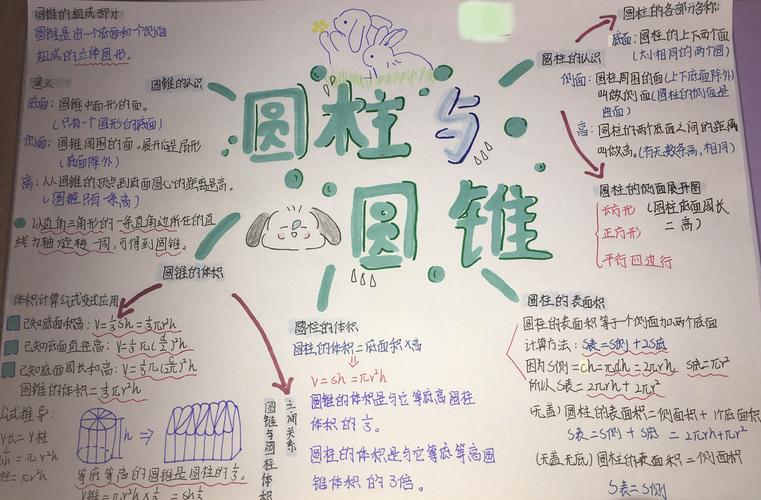 圆锥的组成部分
圆锥是由一个底面和个侧面
组成的立体图形。
意义
底面：圆锥中面形的面。
（只有一个圆形的底面）
侧面：圆锥周围的面，展开后是扇形
（底面除外）
高：从圆锥的顶点到底面圆心的距离是高。
（圆锥只有一条高）
以直角三角形的一条直角边所在的直
线为轴旋转一周，可得到圆锥。
圆锥的认识
圆柱与
圆锥
圆柱的认识
圆柱的各部分名称：
底面：圆柱的上下两个面
（大小相同的两个圆）
侧面：圆柱周围的面（上下底面除外）
叫做侧面（圆柱的侧面是
曲面）
高：圆柱的两个底面之间的距离
叫做高。（有无数条高，相同）
圆柱的侧面展开图
长方形（圆柱底面周长
正方形 = 高）
平行四边形
圆锥的体积
体积计算公式变式应用
已知底面积高：V=⅓sh=⅓πr²h
已知底面直径高：V=⅓π(d/2)²h
已知底面周长和高：V=⅓π(c/2π)²h
圆锥的体积=⅓πr²h
公式推导：
V长=V柱
=πr²h
柱=πr²h
h
等底等高的圆锥是圆柱的⅓。
V锥=πr²h×⅓=sh⅓
圆锥与圆柱体积
之间关系
圆柱的体积
圆柱的体积=底面积×高
V=sh=πr²h
圆锥的体积是与它等底等高圆柱
体积的⅓。
圆柱的体积是与它等底等高圆
锥体积的3倍。
圆柱的表面积
圆柱的表面积等于一个侧面加两个底面
计算方法：S表=S侧+2S底
因为S侧=ch=πdh=2πrh S底=πr²
所以S表=2πrh+2πr²
（无盖）圆柱的表面积=侧面积+1个底面积
S表=S侧+S底=2πrh+πr²
（无盖无底）圆柱的表面积=侧面积
S表=S侧